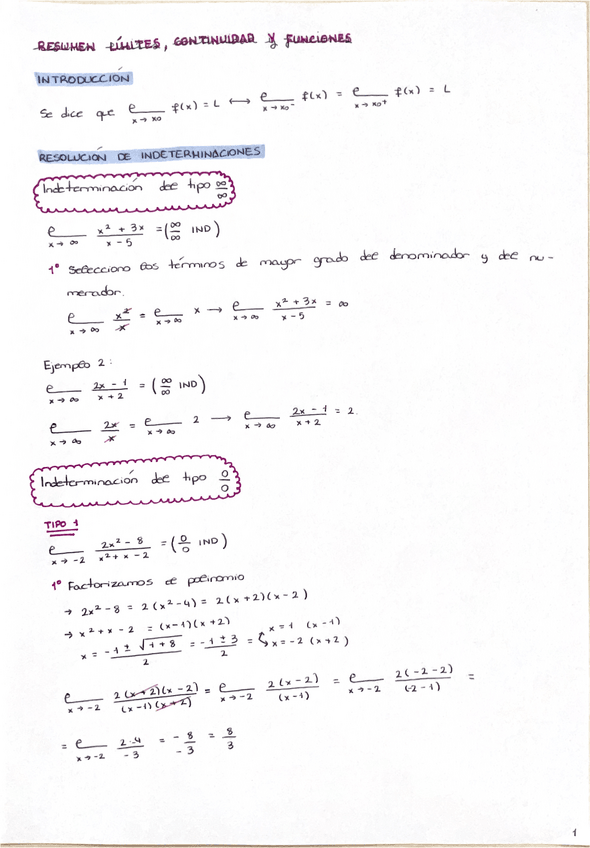 RESUMEN LÍMITES, CONTINUIDAD Y FUNCIONES
INTRODUCCIÓN
Se dice que ℓ x→x0 f(x) = L ⟷ ℓ x→x0⁻ f(x) = ℓ x→x0⁺ f(x) = L
RESOLUCIÓN DE INDETERMINACIONES
Indeterminación del tipo ∞/∞
ℓ x→∞ (x² + 3x)/(x - 5) = (∞/∞ IND)
1º Selecciono los términos de mayor grado del denominador y del nu-
merador.
ℓ x→∞ x²/x = ℓ x→∞ x → ℓ x→∞ (x² + 3x)/(x - 5) = ∞
Ejemplo 2:
ℓ x→∞ (2x - 1)/(x + 2) = (∞/∞ IND)
ℓ x→∞ 2x/x = ℓ x→∞ 2 → ℓ x→∞ (2x - 1)/(x + 2) = 2.
Indeterminación del tipo 0/0
TIPO 1
ℓ x→-2 (2x² - 8)/(x² + x - 2) = (0/0 IND)
1º Factorizamos el polinomio
→ 2x² - 8 = 2(x² - 4) = 2(x + 2)(x - 2)
→ x² + x - 2 = (x - 1)(x + 2)
x = (-1 ± √(1 + 8))/2 = (-1 ± 3)/2 = x = 1 (x - 1)
x = -2 (x + 2)
ℓ x→-2 2(x + 2)(x - 2)/(x - 1)(x + 2) = ℓ x→-2 2(x - 2)/(x - 1) = ℓ x→-2 2(-2 - 2)/(-2 - 1) =
= ℓ x→-2 2·-4/-3 = -8/-3 = 8/3
1